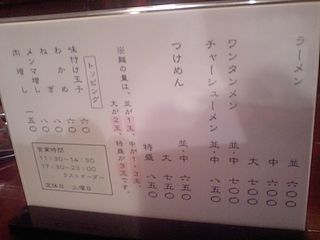 ラーメン 並 六〇〇
中 六五〇
大 七五〇
ワンタンメン 並・中 七〇〇
チャーシューメン 並・中 八五〇
つけめん 並・中 六五〇
大 七五〇
特盛 八五〇
※麺の量は、並が1玉、中が1.3玉、
大が2玉、特盛が3玉です。
トッピング
味付け玉子
わかめ
ねぎ 八〇
メンマ増し 八〇
肉増し 一五〇
営業時間
11:30~14:30
17:30~23:00
ラストオーダー
定休日 火曜日